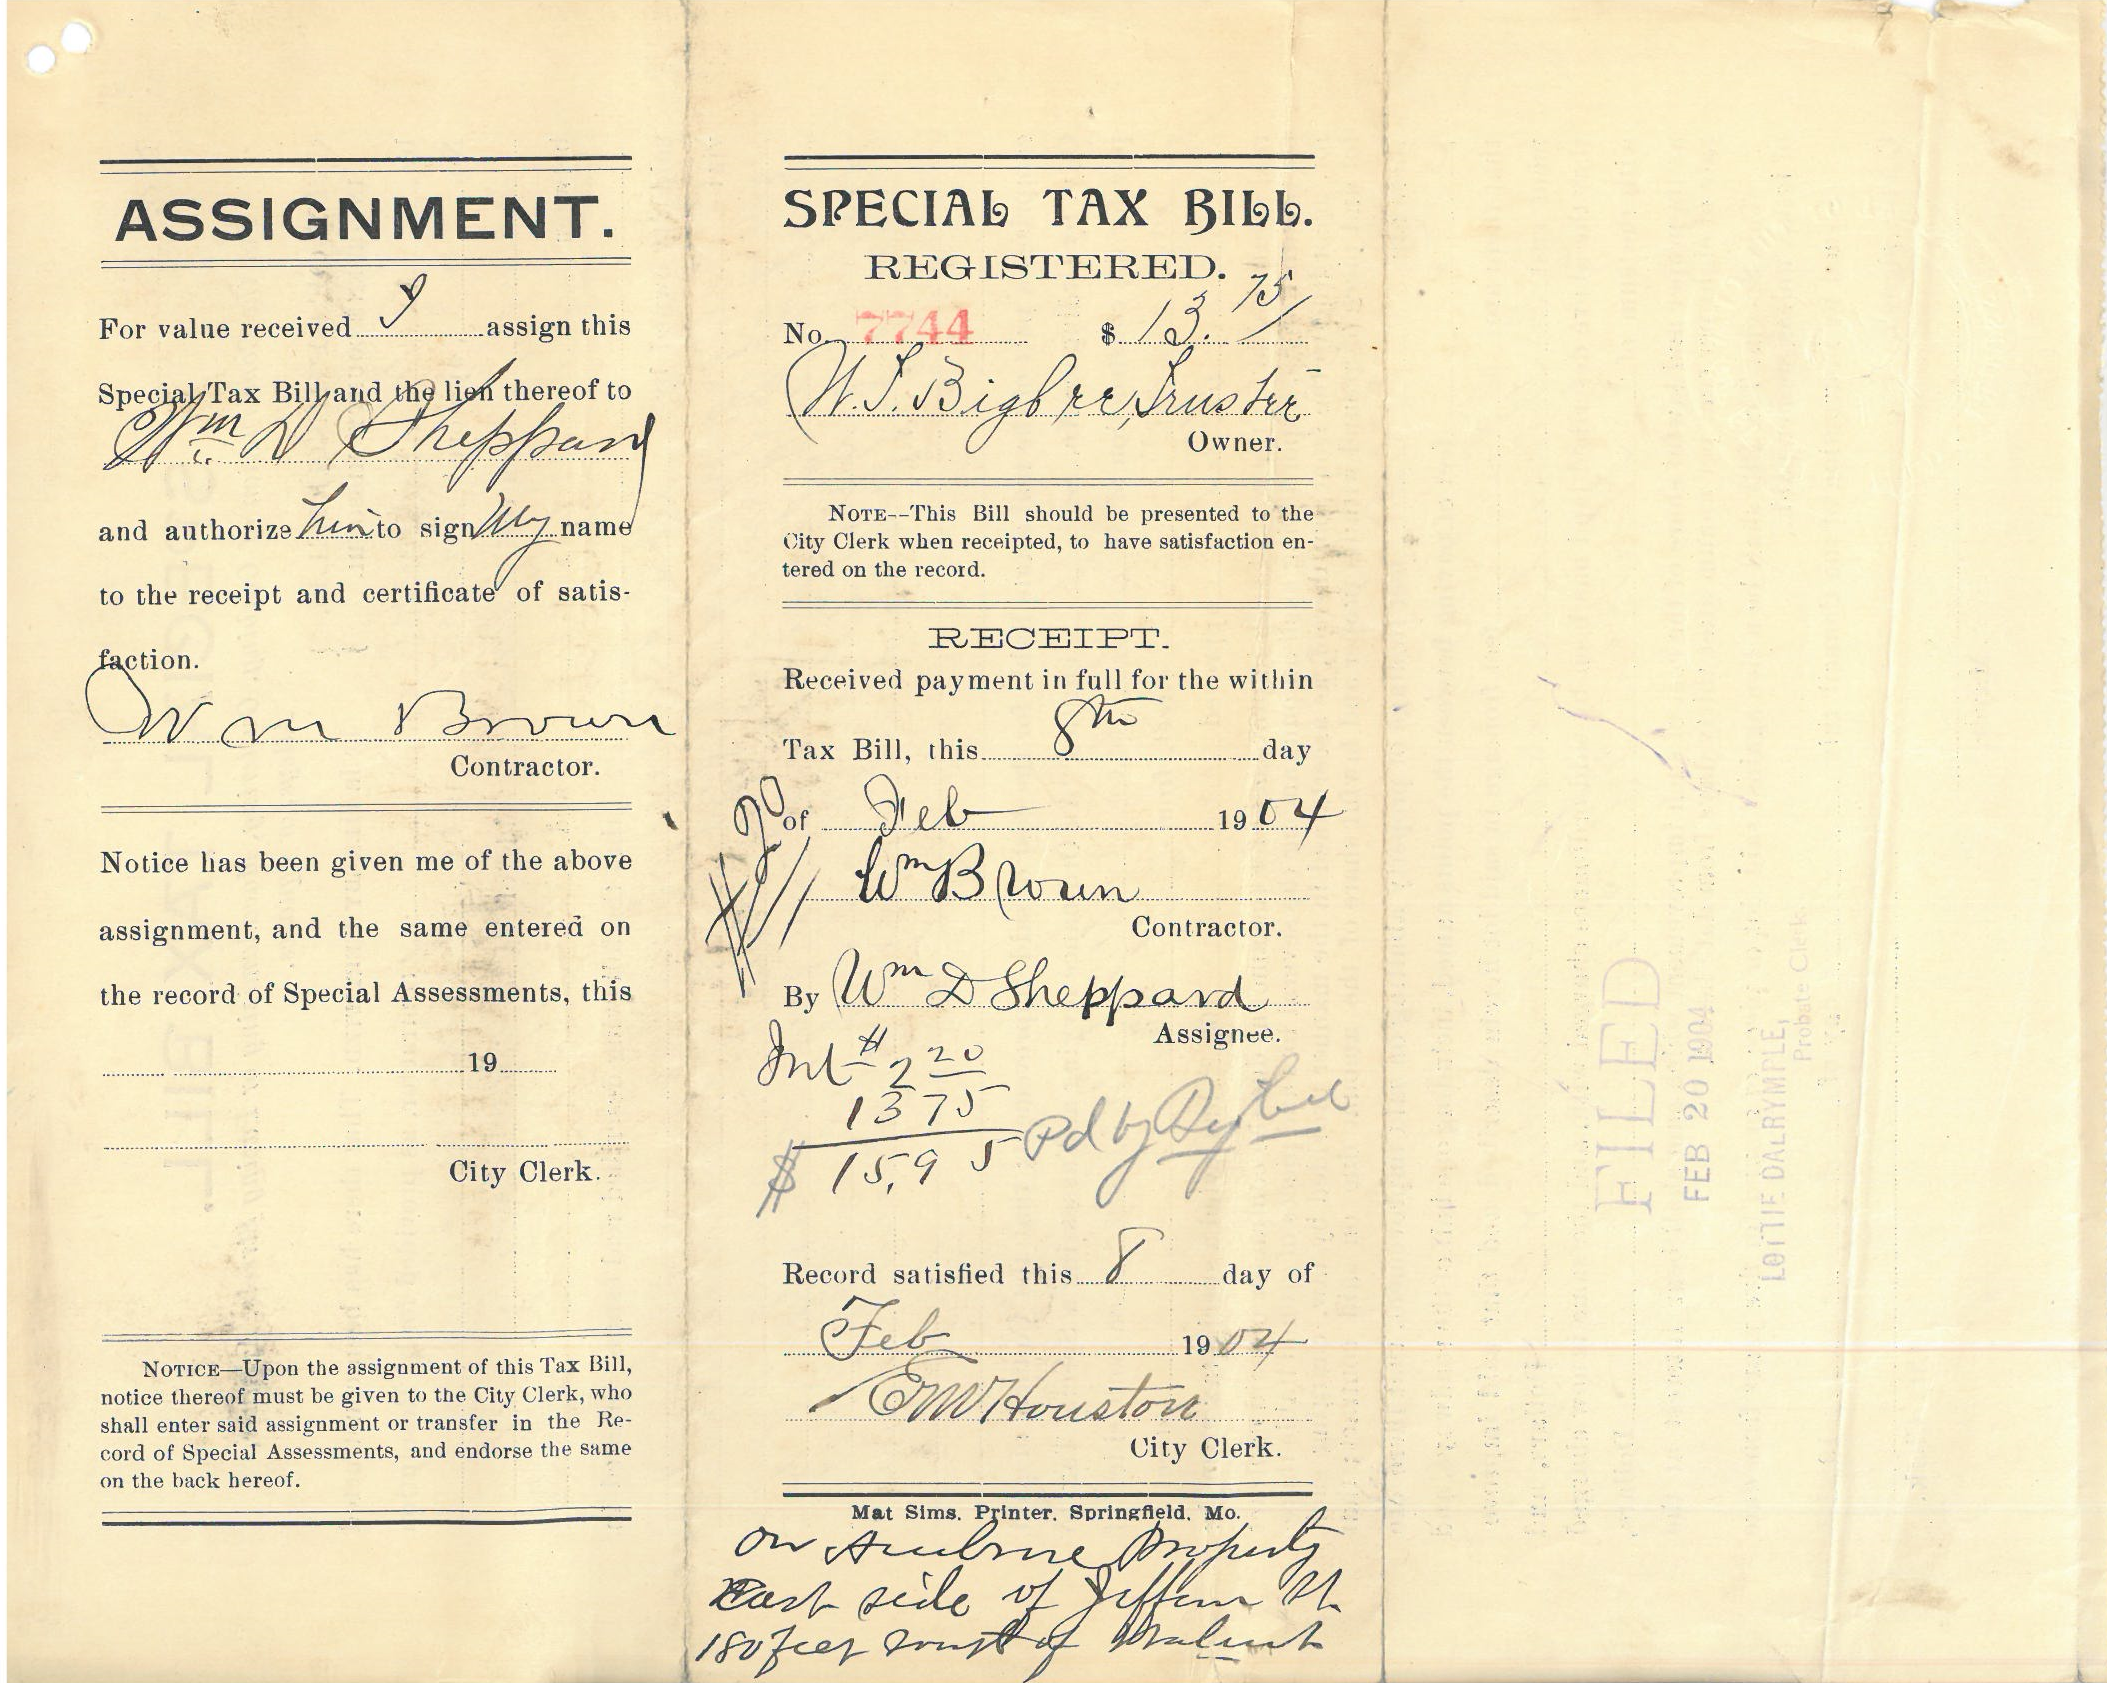 ASSIGNMENT.
For value received I assign this
Special Tax Bill and the lien thereof to
Wm D Sheppard
and authorize him to sign My name
to the receipt and certificate of satis-
faction.
Wm Brown
Contractor.
Notice has been given me of the above
assignment, and the same entered on
the record of Special Assessments, this
19
City Clerk.
NOTICE—Upon the assignment of this Tax Bill,
notice thereof must be given to the City Clerk, who
shall enter said assignment or transfer in the Re-
cord of Special Assessments, and endorse the same
on the back hereof.
SPECIAL TAX BILL.
REGISTERED.
No. 7744 $ 13.75
W. T. Bigbee, Trustee
Owner.
NOTE--This Bill should be presented to the
City Clerk when receipted, to have satisfaction en-
tered on the record.
RECEIPT.
Received payment in full for the within
Tax Bill, this 8th day
of Feb 1904
Wm Brown
Contractor.
By Wm D Sheppard
Assignee.
Int $ 2 20
13 75
$ 15,95
Pd by
Record satisfied this 8 day of
Feb 1904
E M Houston
City Clerk.
Mat Sims, Printer, Springfield, Mo.
On Property
East side of St.
180 feet of Walnut
FILED
FEB 20 1904
LOTTIE DALRYMPLE,
Probate Clerk